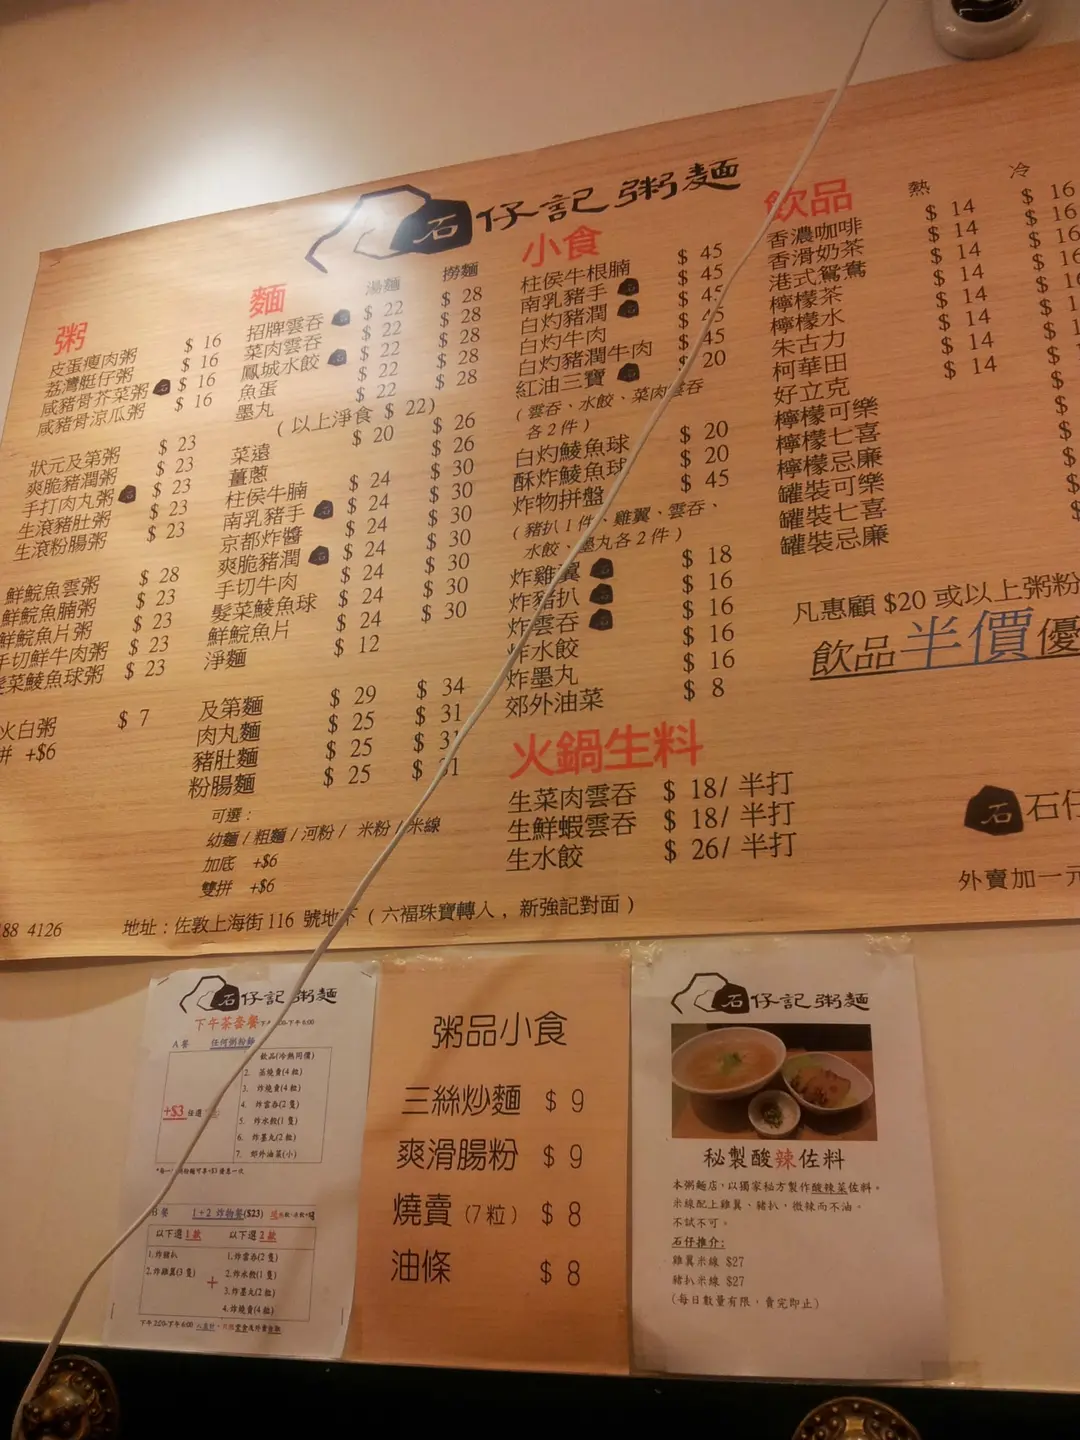 石仔記粥麵
粥
皮蛋瘦肉粥 $ 16
荔灣艇仔粥 $ 16
咸豬骨芥菜粥 石 $ 16
咸豬骨涼瓜粥 $ 16
狀元及第粥 $ 23
爽脆豬潤粥 $ 23
手打肉丸粥 石 $ 23
生滾豬肚粥 $ 23
生滾粉腸粥 $ 23
鮮鯇魚雲粥 $ 28
鮮鯇魚腩粥 $ 23
鮮鯇魚片粥 $ 23
手切鮮牛肉粥 $ 23
髮菜鯪魚球粥 $ 23
火白粥 $ 7
拼 +$6
麵 湯麵 撈麵
招牌雲吞 石 $ 22 $ 28
菜肉雲吞 $ 22 $ 28
鳳城水餃 石 $ 22 $ 28
魚蛋 $ 22 $ 28
墨丸 $ 22 $ 28
( 以上淨食 $ 22)
菜遠 $ 20 $ 26
薑蔥 $ 26
柱侯牛腩 $ 24 $ 30
南乳豬手 石 $ 24 $ 30
京都炸醬 $ 24 $ 30
爽脆豬潤 石 $ 24 $ 30
手切牛肉 $ 24 $ 30
髮菜鯪魚球 $ 24 $ 30
鮮鯇魚片 $ 24 $ 30
淨麵 $ 12
及第麵 $ 29 $ 34
肉丸麵 $ 25 $ 31
豬肚麵 $ 25 $ 31
粉腸麵 $ 25 $ 31
可選：
幼麵 / 粗麵 / 河粉 / 米粉 / 米線
加底 +$6
雙拼 +$6
小食
柱侯牛根腩 $ 45
南乳豬手 石 $ 45
白灼豬潤 石 $ 45
白灼牛肉 $ 45
白灼豬潤牛肉 $ 45
紅油三寶 石 $ 20
( 雲吞、水餃、菜肉雲吞
各 2 件 )
白灼鯪魚球 $ 20
酥炸鯪魚球 $ 20
炸物拼盤 $ 45
( 豬扒 1 件、雞翼、雲吞、
水餃、墨丸各 2 件 )
炸雞翼 石 $ 18
炸豬扒 石 $ 16
炸雲吞 石 $ 16
炸水餃 $ 16
炸墨丸 $ 16
郊外油菜 $ 8
火鍋生料
生菜肉雲吞 $ 18/ 半打
生鮮蝦雲吞 $ 18/ 半打
生水餃 $ 26/ 半打
飲品 熱 冷
香濃咖啡 $ 14 $ 16
香滑奶茶 $ 14 $ 16
港式鴛鴦 $ 14 $ 16
檸檬茶 $ 14 $ 16
檸檬水 $ 14
朱古力 $ 14
柯華田 $ 14
好立克 $ 14
檸檬可樂
檸檬七喜
檸檬忌廉
罐裝可樂
罐裝七喜
罐裝忌廉
凡惠顧 $20 或以上粥粉
飲品半價優
石 石仔
外賣加一元
188 4126 地址：佐敦上海街 116 號地下 ( 六福珠寶轉入，新強記對面 )
石仔記粥麵
下午茶套餐
A 餐 任何粥粉麵
+$3 任選
飲品(冷熱同價)
2. 蒸燒賣(4 粒)
3. 炸燒賣(4 粒)
4. 炸雲吞(2 隻)
5. 炸水餃(1 隻)
6. 炸墨丸(2 粒)
7. 郊外油菜(小)
B 餐 1+2 炸物餐($23)
以下選1款 以下選2款
1. 炸豬扒
2. 炸雞翼(3 隻)
+
1. 炸雲吞(2 隻)
2. 炸水餃(1 隻)
3. 炸墨丸(2 粒)
4. 炸燒賣(4 粒)
下午 2:20-下午 6:00
粥品小食
三絲炒麵 $ 9
爽滑腸粉 $ 9
燒賣 (7 粒) $ 8
油條 $ 8
石仔記粥麵
秘製酸辣佐料
本粥麵店，以獨家秘方製作酸辣菜佐料。
米線配上雞翼、豬扒，微辣而不油。
不試不可。
石仔推介:
雞翼米線 $27
豬扒米線 $27
(每日數量有限，賣完即止)